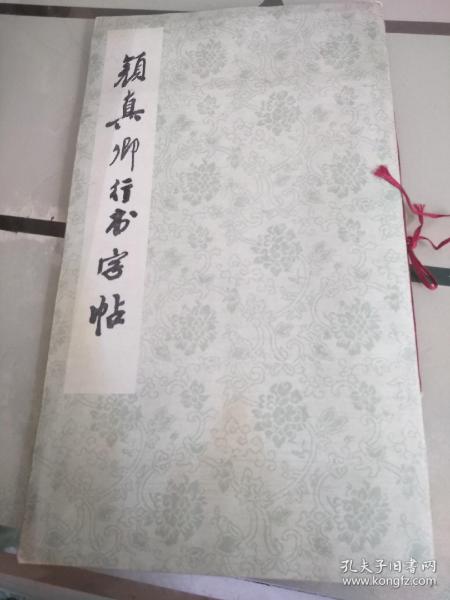 颜真卿行书字帖
孔夫子旧书网
www.kongfz.com